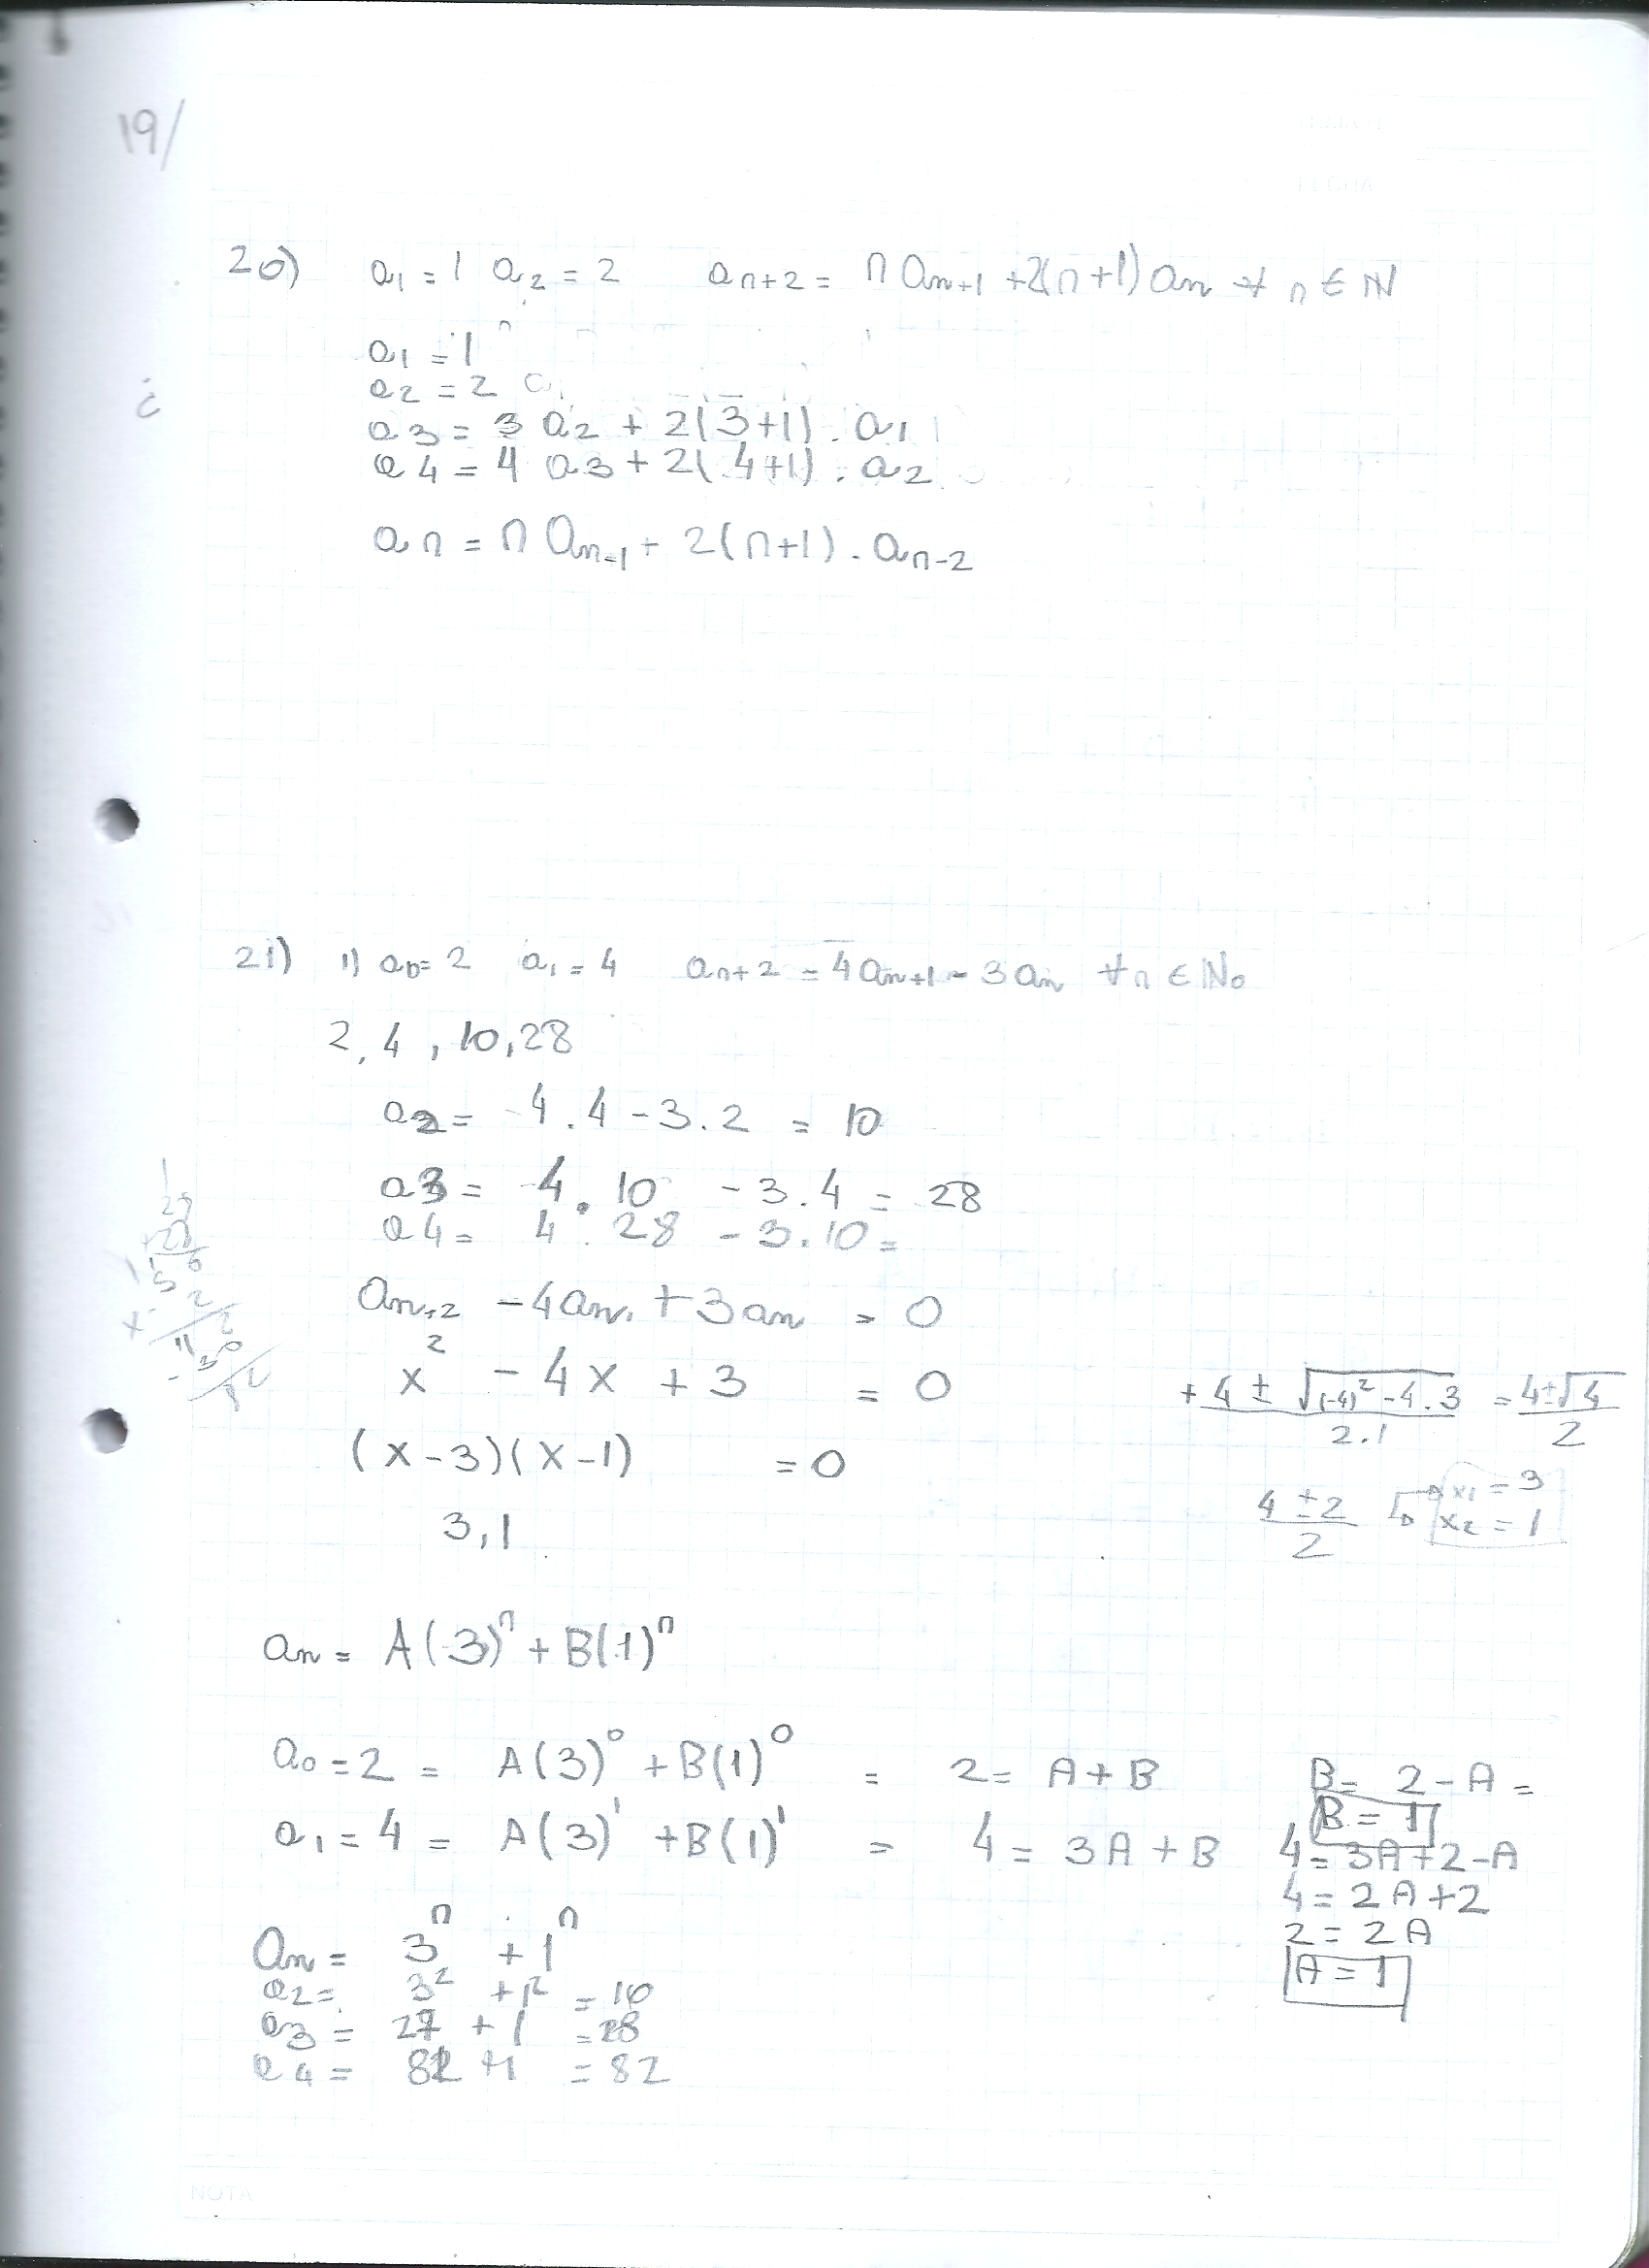 19/
TEMA N
FECHA
20) a1 = 1 a2 = 2 an+2 = n an+1 + 2(n+1) an ∀ n ∈ N
a1 = 1
a2 = 2
¿
a3 = 3 a2 + 2(3+1) . a1
a4 = 4 a3 + 2(4+1) . a2
an = n an-1 + 2(n+1) . an-2
21) 1) a0 = 2 a1 = 4 an+2 = 4an+1 - 3an ∀ n ∈ N0
2, 4, 10, 28
a2 = 4.4 - 3.2 = 10
a3 = 4.10 - 3.4 = 28
a4 = 4.28 - 3.10 =
an+2 - 4an+1 + 3an = 0
x² - 4x + 3 = 0
+4 ± √((-4)² - 4.3) / 2.1 = 4±√4 / 2
(x-3)(x-1) = 0
4±2 / 2 x1 = 3
x2 = 1
3, 1
an = A(3)ⁿ + B(1)ⁿ
a0 = 2 = A(3)⁰ + B(1)⁰ = 2 = A + B B = 2 - A =
B = 1
a1 = 4 = A(3)¹ + B(1)¹ = 4 = 3A + B 4 = 3A + 2 - A
4 = 2A + 2
2 = 2A
A = 1
an = 3ⁿ + 1ⁿ
a2 = 3² + 1² = 10
a3 = 27 + 1 = 28
a4 = 81 + 1 = 82
NOTA